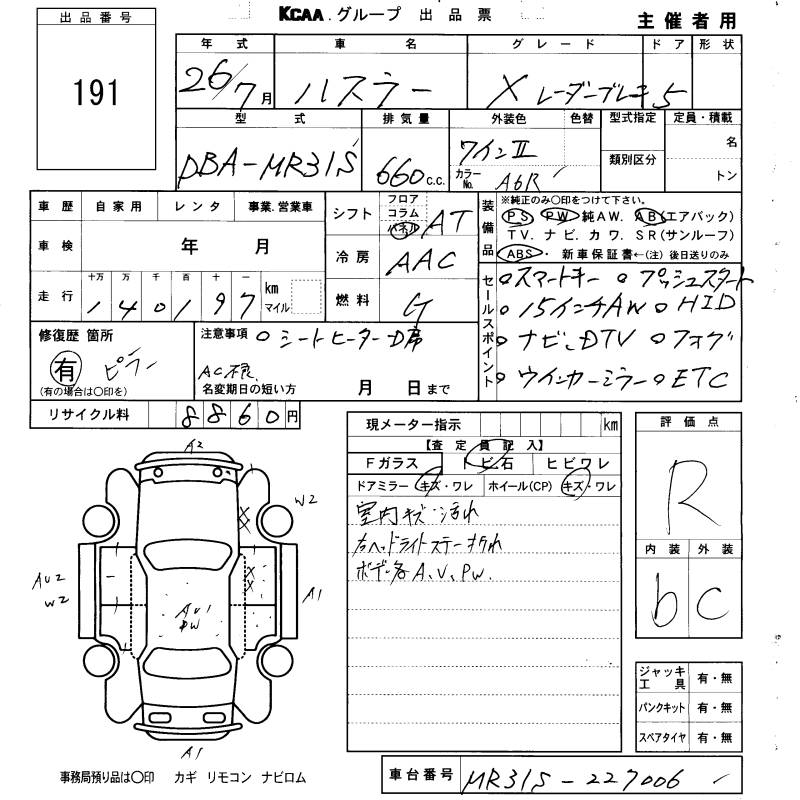 KCAA.グループ 出品票
主催者用
出品番号
191
年式 車名 グレード ドア 形状
26/7月 ハスラー X レーダーブレーキ 5
型式 排気量 外装色 色替 型式指定 定員・積載
DBA-MR31S 660c.c. ワインII
カラーNo. A6R
類別区分
名
トン
車歴 自家用 レンタ 事業.営業車
車検 年 月
走行 十万 万 千 百 十 一
140197 km マイル
シフト フロア コラム パネル AT
冷房 AAC
燃料 G
装備品 ※純正のみ〇印をつけて下さい。
PS PW 純AW. AB(エアバック)
TV. ナビ. カワ. SR(サンルーフ)
ABS・新車保証書←(注)後日送りのみ
セールスポイント
○スマートキー ○プッシュスタート
○15インチAW ○HID
○ナビ、DTV ○フォグ
○ウインカーミラー ○ETC
修復歴 箇所
有 ピラー
(有の場合は〇印を)
注意事項 ○シートヒーターD席
AC不良
名変期日の短い方 月 日まで
リサイクル料 8860円
現メーター指示 km
【査定員記入】
Fガラス トビ石 ヒビワレ
ドアミラー キズ・ワレ ホイール(CP) キズ・ワレ
室内キズ・汚れ
右ヘッドライトステー折れ
ボデー各A、V、PW.
評価点
R
内装 外装
b C
ジャッキ工具 有・無
パンクキット 有・無
スペアタイヤ 有・無
A2
W2
AU2
W2
A1
AU1
PW
A1
事務局預り品は〇印 カギ リモコン ナビロム
車台番号 MR31S-227006